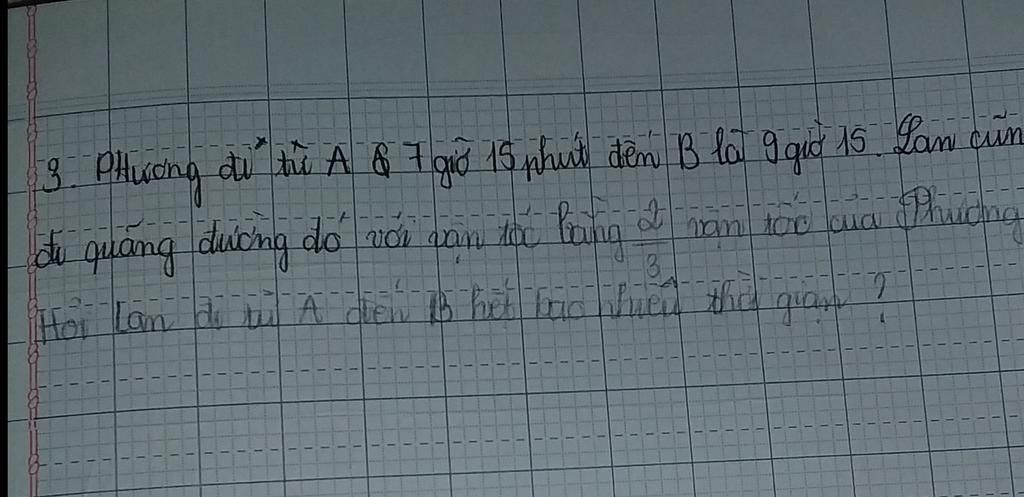 3. Phương đi từ A ở 7 giờ 15 phút đến B là 9 giờ 15. Lan cũn
đi quãng đường đó với vận tốc bằng 2/3 vận tốc của Phương
Hỏi Lan đi từ A đến B hết bao nhiêu thời gian ?